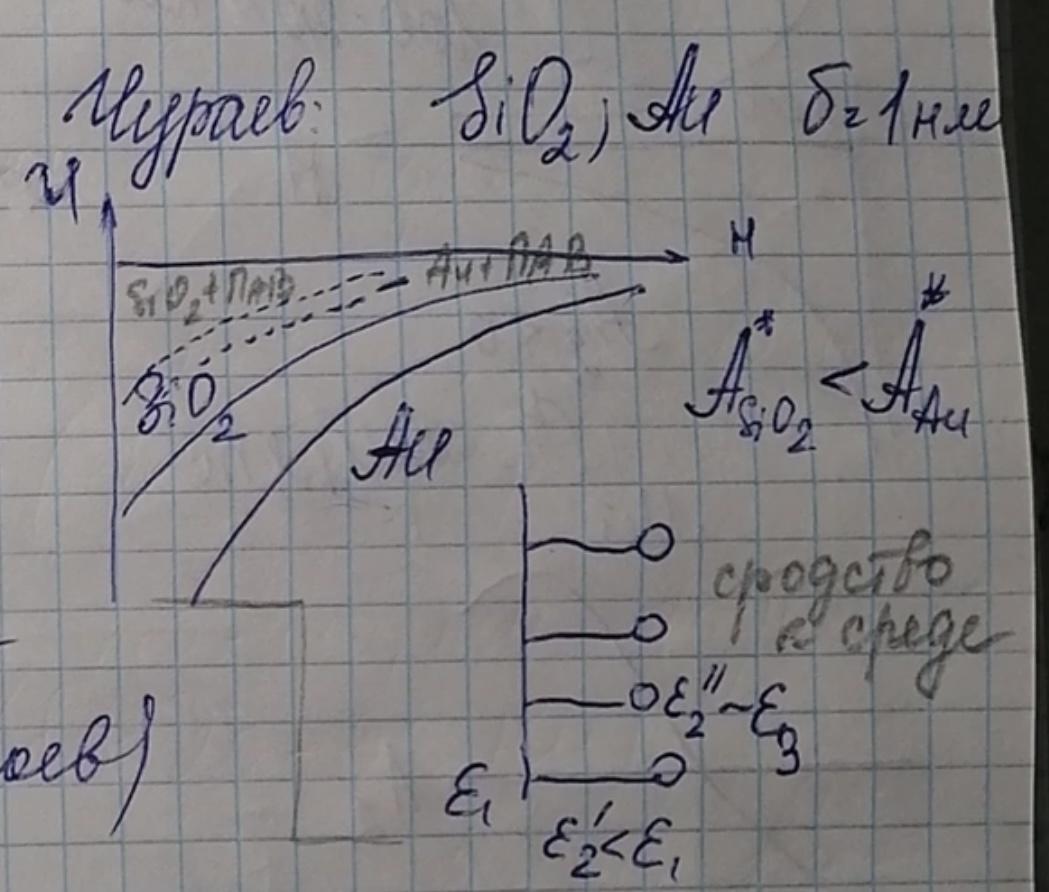 Чураев: SiO₂, Au δ=1 нм
U
H
SiO₂+ПАВ Au+ПАВ
SiO₂
Au
A*SiO₂ < A*Au
сродство
к среде
ε₂''~ε₃
оев)
ε₁
ε₂'<ε₁